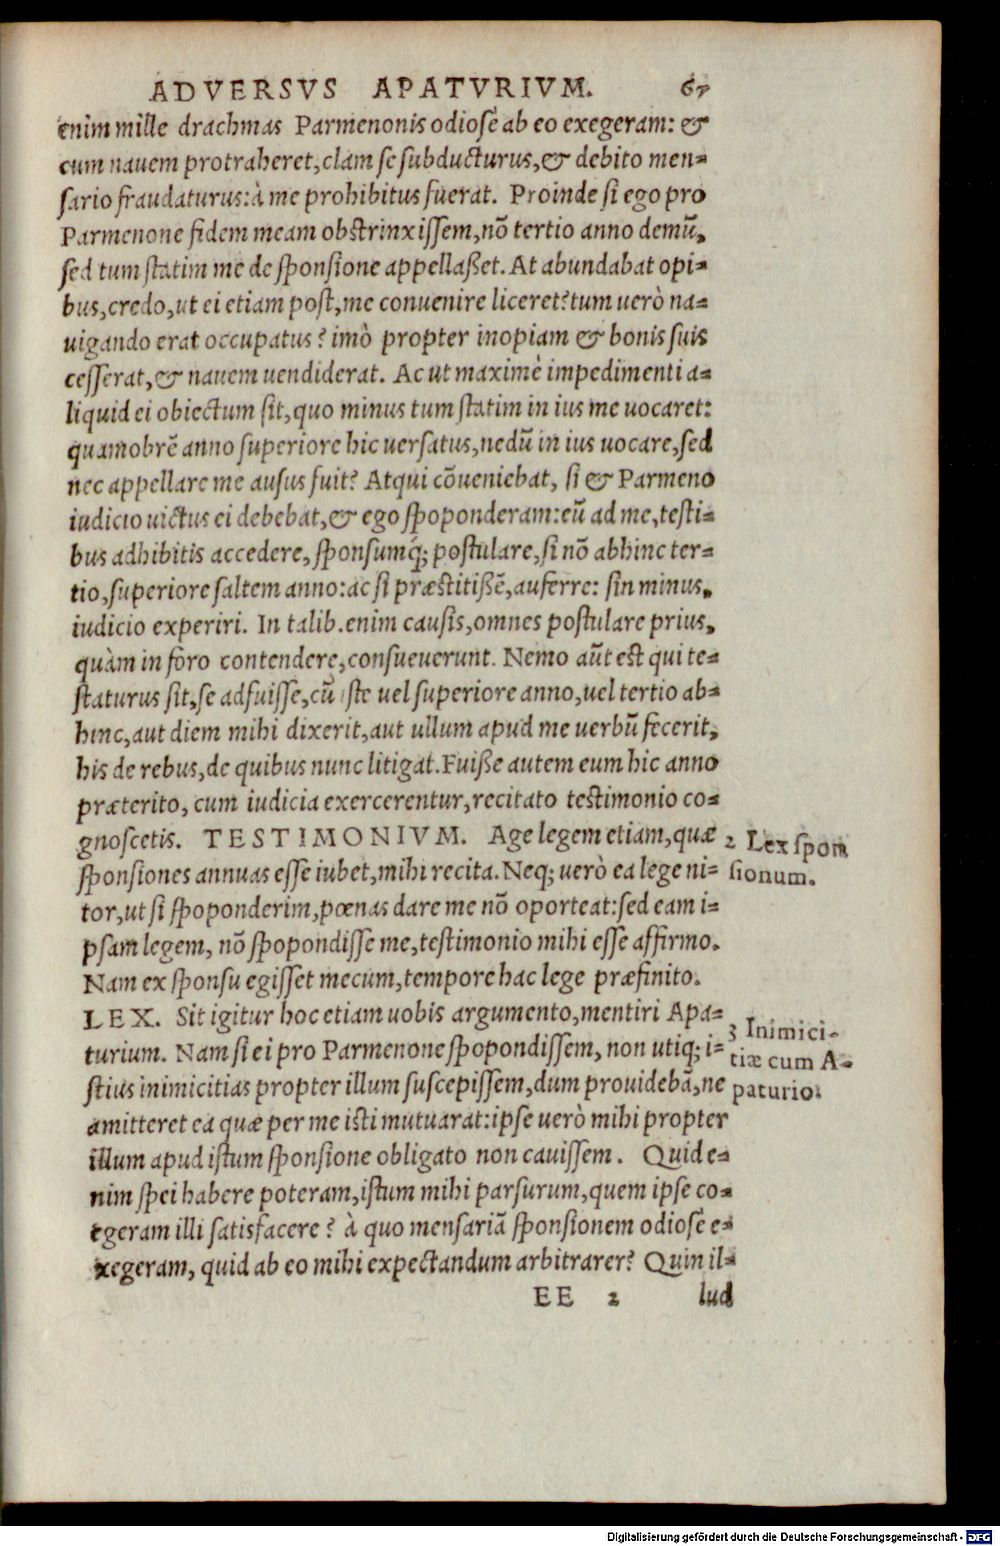 ADVERSVS APATVRIVM. 67
enim mille drachmas Parmenonis odiosè ab eo exegeram: &
cum nauem protraheret, clàm se subducturus, & debito men-
sario fraudaturus: à me prohibitus fuerat. Proinde si ego pro
Parmenone fidem meam obstrinxissem, nõ tertio anno demũ,
sed tum statim me de sponsione appellaßet. At abundabat opi-
bus, credo, ut ei etiam post, me conuenire liceret? tum uerò na-
uigando erat occupatus? imò propter inopiam & bonis suis
cesserat, & nauem uendiderat. Ac ut maximè impedimenti a-
liquid ei obiectum sit, quo minus tum statim in ius me uocaret:
quamobrẽ anno superiore hic uersatus, nedũ in ius uocare, sed
nec appellare me ausus fuit? Atqui cõueniebat, si & Parmeno
iudicio uictus ei debebat, & ego spoponderam: eũ ad me, testi-
bus adhibitis accedere, sponsumq́; postulare, si nõ abhinc ter-
tio, superiore saltem anno: ac si præstitißẽ, auferre: sin minus,
iudicio experiri. In talib. enim causis, omnes postulare prius,
quàm in foro contendere, consueuerunt. Nemo aũt est qui te-
staturus sit, se adfuisse, cũ iste uel superiore anno, uel tertio ab-
hinc, aut diem mihi dixerit, aut ullum apud me uerbũ fecerit,
his de rebus, de quibus nunc litigat. Fuiße autem eum hic anno
præterito, cum iudicia exercerentur, recitato testimonio co-
gnoscetis. TESTIMONIVM. Age legem etiam, quæ
2 Lex spon
sponsiones annuas esse iubet, mihi recita. Neq; uerò ea lege ni-
sionum.
tor, ut si spoponderim, pœnas dare me nõ oporteat: sed eam i-
psam legem, nõ spopondisse me, testimonio mihi esse affirmo.
Nam ex sponsu egisset mecum, tempore hac lege præfinito.
LEX. Sit igitur hoc etiam uobis argumento, mentiri Apa-
3 Inimici-
turium. Nam si ei pro Parmenone spopondissem, non utiq; i-
tiæ cum A-
stius inimicitias propter illum suscepissem, dum prouidebã, ne
paturio.
amitteret ea quæ per me isti mutuarat: ipse uerò mihi propter
illum apud istum sponsione obligato non cauissem. Quid e-
nim spei habere poteram, istum mihi parsurum, quem ipse co-
egeram illi satisfacere? à quo mensariã sponsionem odiosè e-
xegeram, quid ab eo mihi expectandum arbitrarer? Quin il-
EE 2 lud
Digitalisierung gefördert durch die Deutsche Forschungsgemeinschaft - DFG